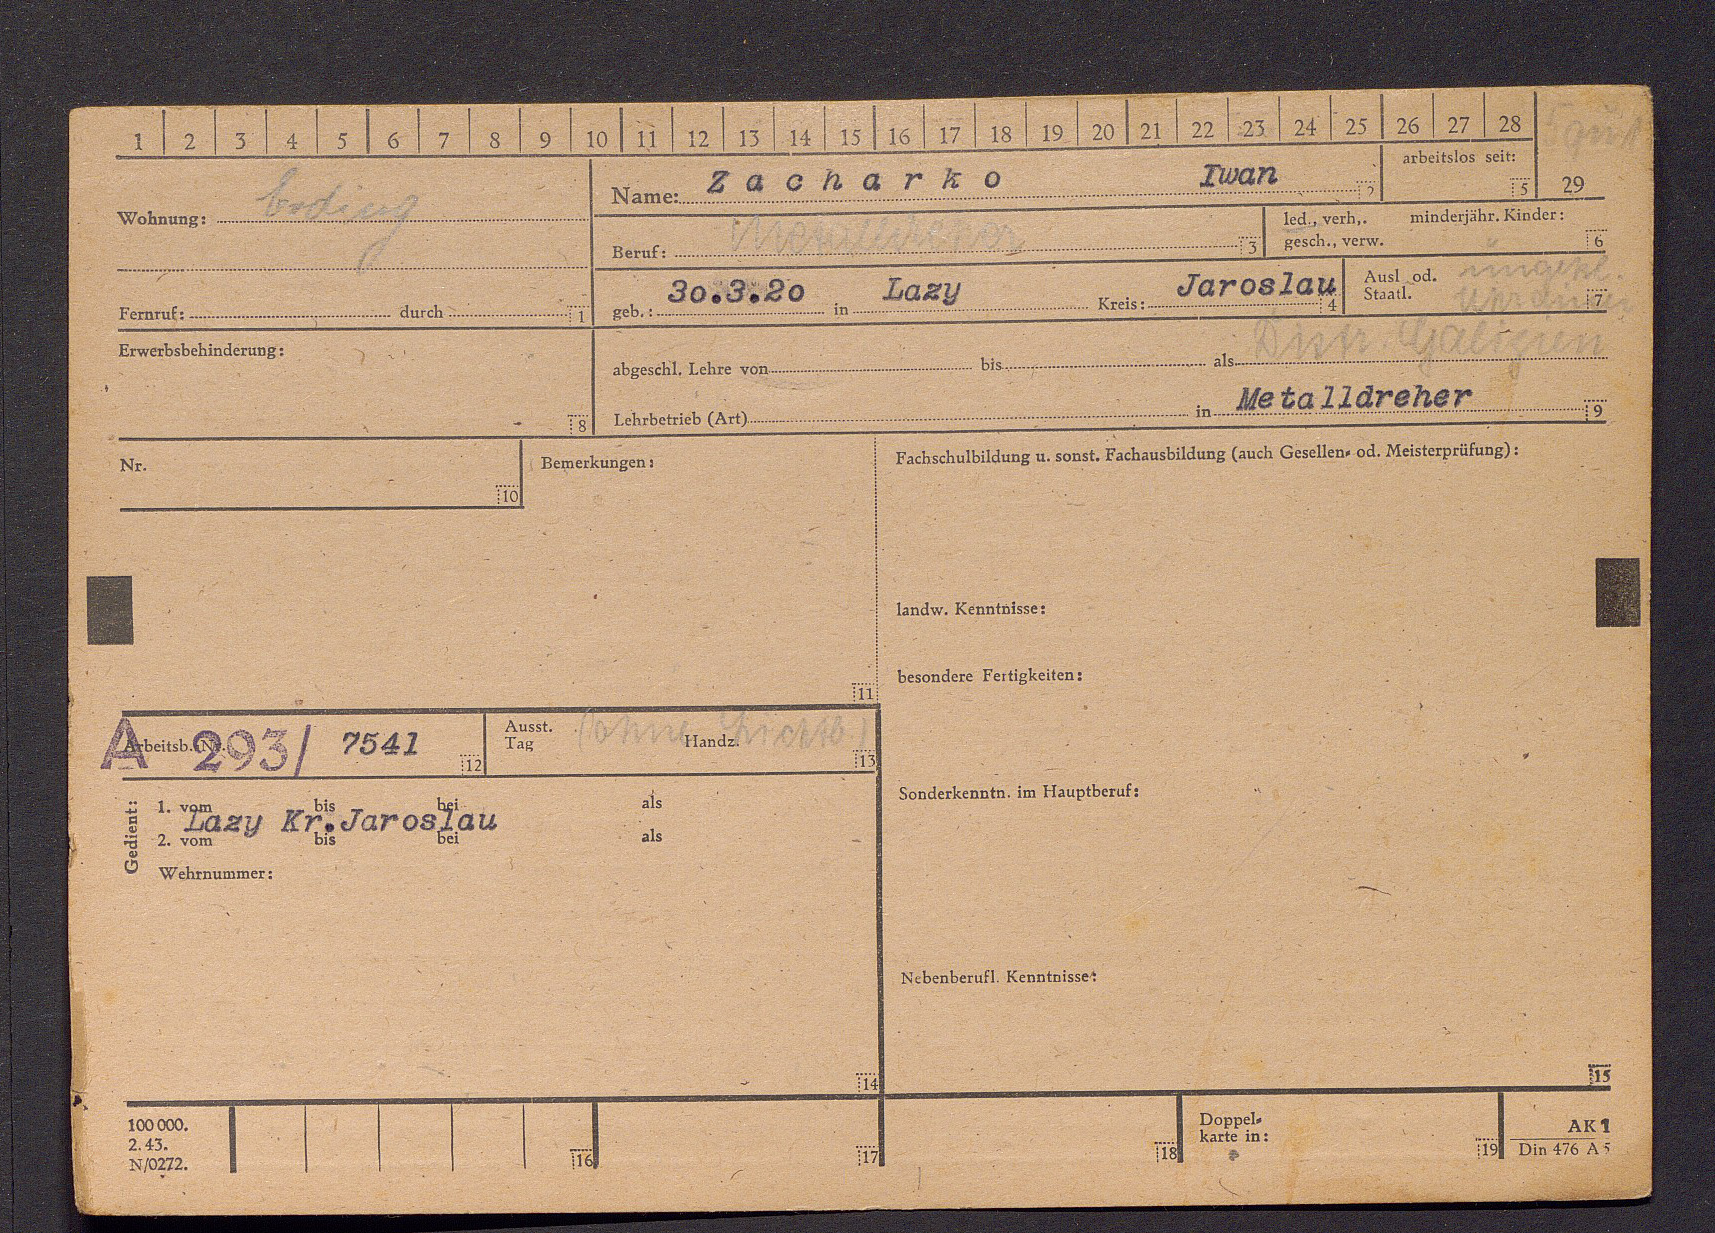 1 2 3 4 5 6 7 8 9 10 11 12 13 14 15 16 17 18 19 20 21 22 23 24 25 26 27 28
Wohnung: Erding
Name: Zacharko Iwan 2
arbeitslos seit: 5
29
Beruf: Metalldreher 3
led., verh,. minderjähr. Kinder:
gesch., verw. 6
Fernruf: durch 1
geb.: 30.3.20 in Lazy Kreis: Jaroslau 4
Ausl. od. ungekl.
Staatl. Ukrainer 7
Distr. Galizien
Erwerbsbehinderung:
8
abgeschl. Lehre von bis als
Lehrbetrieb (Art) in Metalldreher 9
Nr.
10
Bemerkungen:
11
Fachschulbildung u. sonst. Fachausbildung (auch Gesellen- od. Meisterprüfung):
landw. Kenntnisse:
besondere Fertigkeiten:
Sonderkenntn. im Hauptberuf:
Nebenberufl. Kenntnisse:
15
Arbeitsb. Nr. A 293/ 7541 12
Ausst. (ohne Lichtb.)
Tag Handz. 13
Gedient:
1. vom bis bei als
Lazy Kr.Jaroslau
2. vom bis bei als
Wehrnummer:
14
100 000.
2. 43.
N/0272.
16
17
18
Doppel-
karte in:
19
AK 1
Din 476 A 5